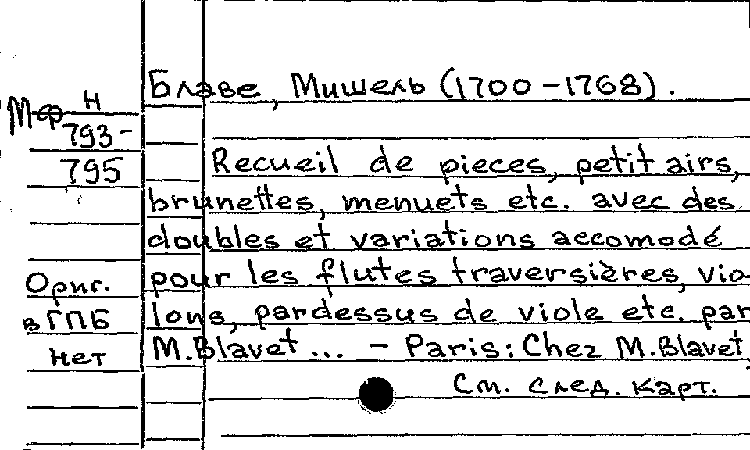 Блаве, Мишель (1700-1768).
Мф Н
793-
795
Recueil de pieces, petit airs,
brunettes, menuets etc. avec des
doubles et variations accomodé
pour les flutes traversières, vio-
lons, pardessus de viole etc. par
M.Blavet... - Paris: Chez M.Blavet,
Ориг.
в ГПБ
нет
См. след. карт.